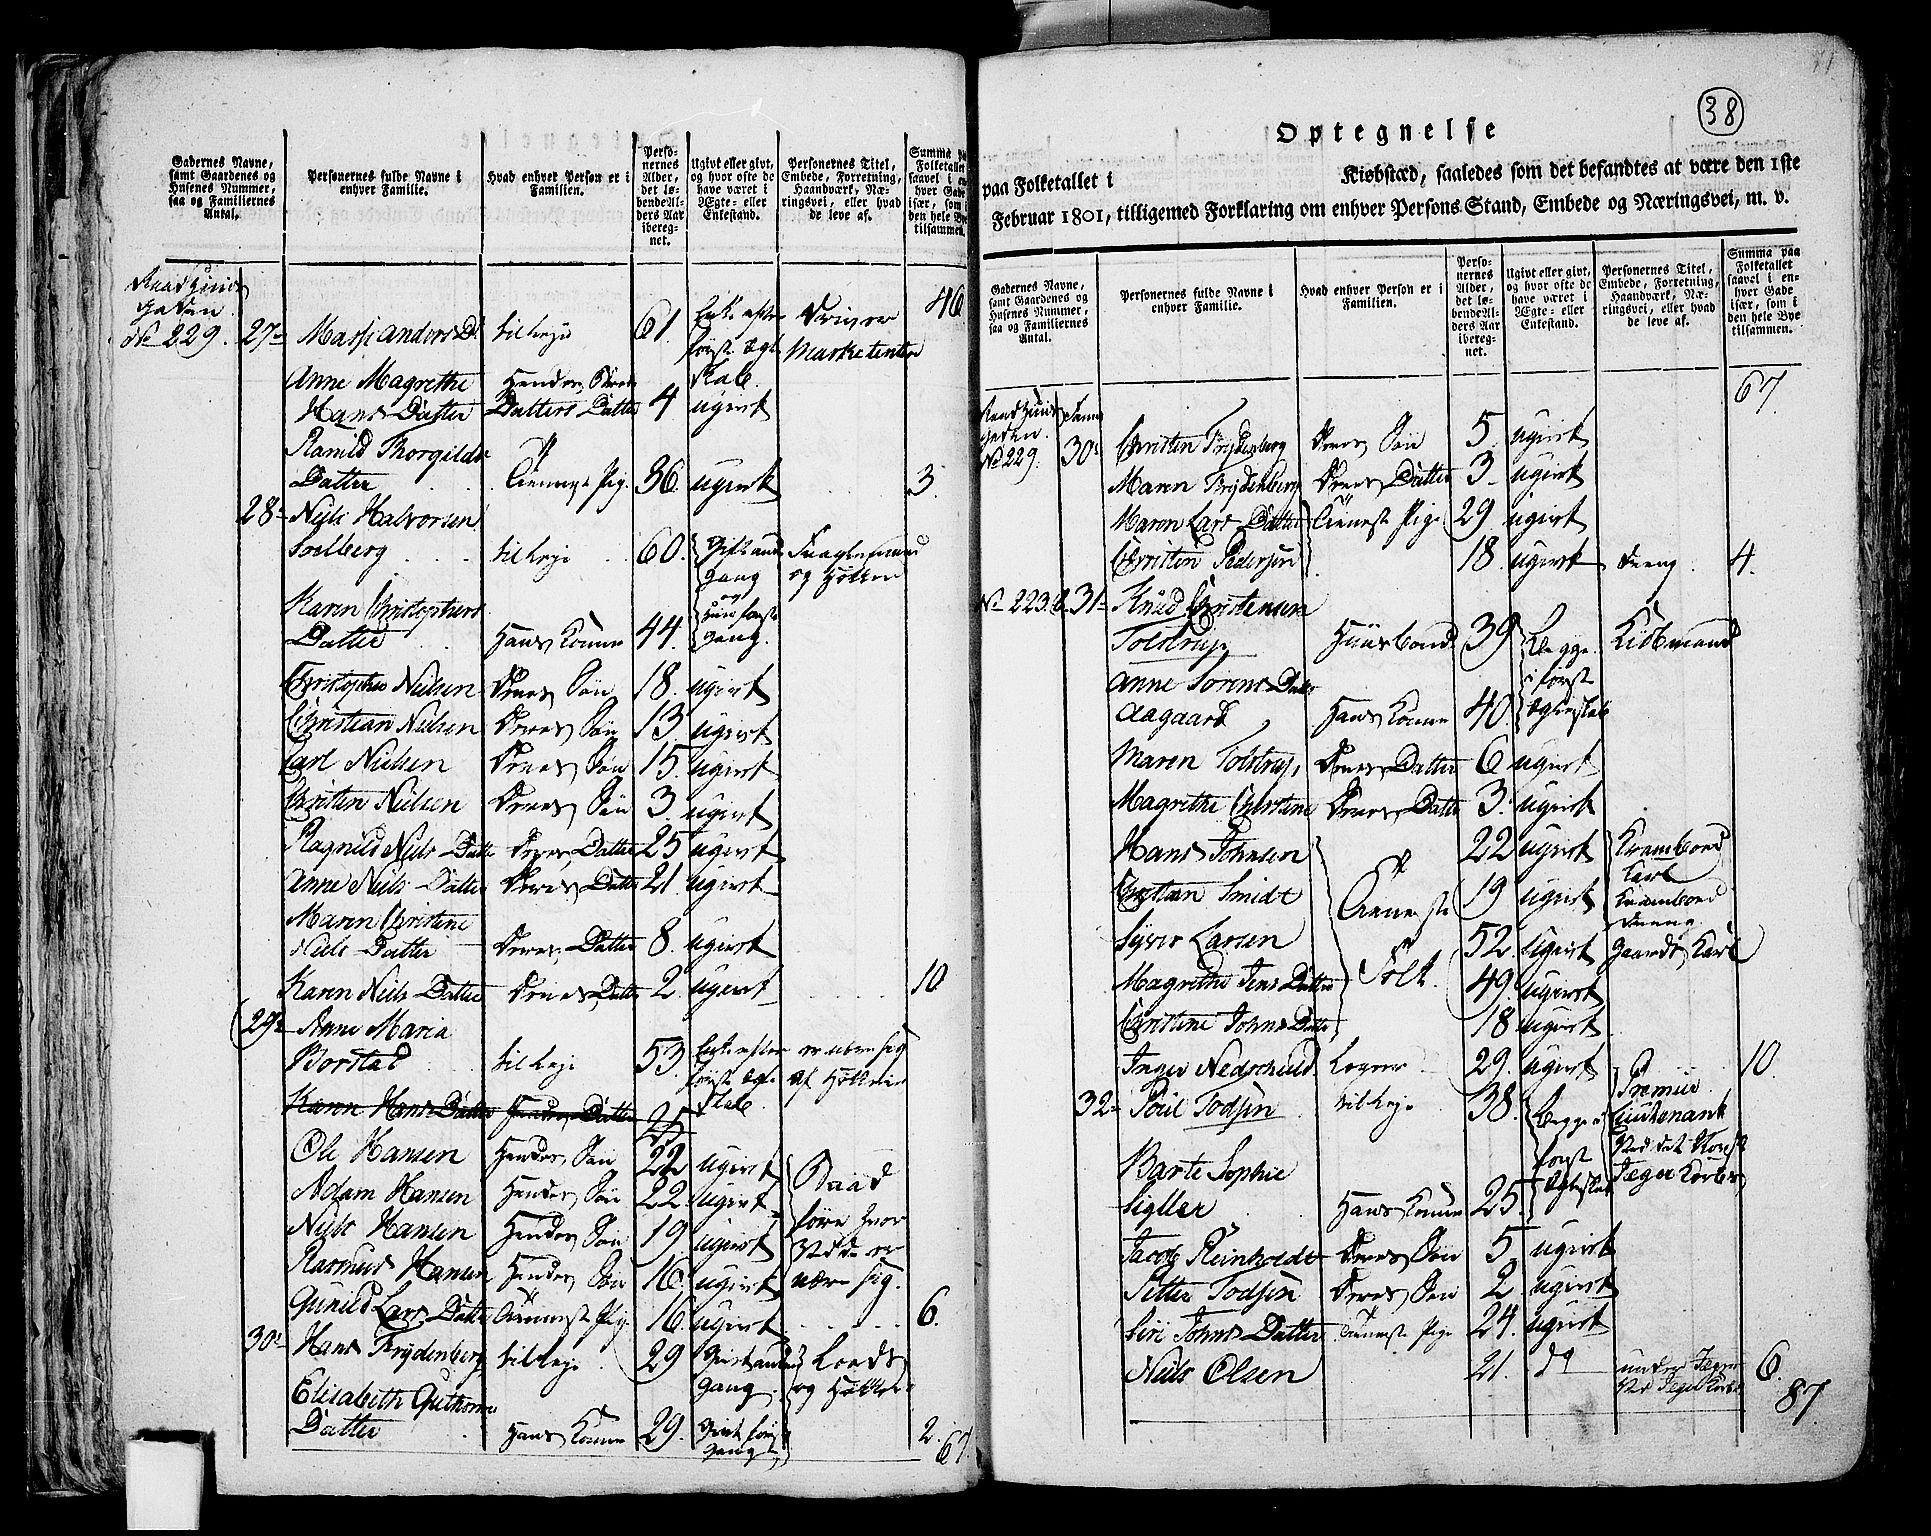 Gadernes Navne, samt Gaardenes og Husenes Nummer, saa og Familiernes Antal.
Personernes fulde Navne i enhver Familie.
Hvad enhver Person er i Familien.
Personernes Alder, det løbende Alders Aar iberegnet.
Ugivt eller givt, og hvor ofte de have været i Ægte- eller Enkestand.
Personernes Titel, Embede, Forretning, Haandværk, Næringsvei, eller hvad de leve af.
Summa paa Folketallet
46
Raadhuus
Gaden
No 229. 27 Massi Anders D. til Leje 61 Enke efter Driver
første Ægte Marketenter
skab.
Anne Magrethe Hendes
Hans Datter Datters Datter 4 ugivt
Ranild Thorgilds
Datter Tieneste Pig. 36. ugivt 3.
28 Niels Halvorsen
Soelberg til Leje 60. Gift anden
gang og Høkker
og
Karen Christophers første
Datter Hans Konne 44. gang.
Christopher Nielsen Deres Søn 18. ugivt
Christian Nielsen Deres Søn 13. ugivt
Carl Nielsen Deres Søn 15. ugivt
Christen Nielsen Deres Søn 3. ugivt
Ragnild Niels Datter Deres Datter 25 ugivt
Anne Niels Datter Deres Datter 21 ugivt
Maren Christine
Niels Datter Deres Datter 8. ugivt
Karen Niels Datter Deres Datter 2. ugivt 10
29 Anne Maria
Borstad til Leje 53. Enke efter
første Ægte
skab.
Karen Hans Datter Hendes Datter 25
Ole Hansen Hendes Søn 22 ugivt Baad
Adam Hansen Hendes Søn 22. ugivt
Niels Hansen Hendes Søn 19 ugivt
Rasmus Hansen Hendes Søn 16 ugivt nære sig.
Gunild Lars Datter Tieneste Pig 16. ugivt 6.
30 Hans Frydenberg til Leje 29 Givt anden Loeds
gang. og Høkker
Elisabeth Guthorms
Datter Hans Konne 29. Givt første 2.
gang 67.
38
Optegnelse
paa Folketallet i Kiøbstæd, saaledes som det befandtes at være den 1ste
Februar 1801, tilligemed Forklaring om enhver Persons Stand, Embede og Næringsvei, m. v.
Gadernes Navne, samt Gaardenes og Husenes Nummer, saa og Familiernes Antal.
Personernes fulde Navne i enhver Familie.
Hvad enhver Person er i Familien.
Personernes Alder, det løbende Alders Aar iberegnet.
Ugivt eller givt, og hvor ofte de have været i Ægte- eller Enkestand.
Personernes Titel, Embede, Forretning, Haandværk, Næringsvei, eller hvad de leve af.
Summa paa Folketallet saavel i enhver Gade især, som i den hele Bye tilsammen.
67
Raadhuus
gaden.
No 229. 30 Christen Frydenberg Deres Søn 5 ugivt
Maren Frydenberg Deres Datter 3 ugivt
Maren Lars Datter Tieneste Pige 29 ugivt
Christen Pedersen 18. ugivt Dreng 4.
No 223. 31 Knud Christensen
Tolstrup Huusbond 39 Begge Kiøbmand
Anne Sorens Datter i første
Aagaard Hans Konne 40 Ægteskab
Maren Tolstrup, Deres Datter 6 ugivt
Magrethe Christine Deres Datter 3. ugivt
Hans Johnsen Tieneste 22 ugivt Krambod
Karl
Christian Smidt Folk. 19 ugivt Krambod
Dreng
Syver Larsen 52. ugivt Gaards Karl
Magrethe Jens Datter 49. ugivt
Christine Johns Datter 18 ugivt
Inger Nedschuld Logerer 29. ugivt 10.
32 Poul Todsen til Leje 38. Begge i Premier
Lieutenant
første Ved det Norske
Barte Sophie Jæger Korps
Sigller Hans Konne 25. Ægteskab
Jacob Reinholdt Deres Søn 5 ugivt
Petter Todsen Deres Søn 2 ugivt
Siri Johns Datter Tieneste Pige 24. ugivt
Niels Olsen 21. do under Jæger 6.
87.